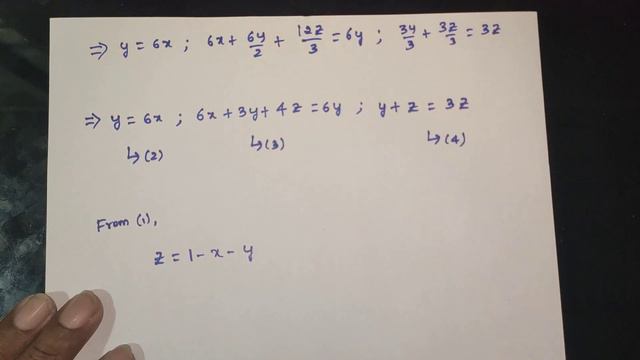 ⇒ y = 6x ; 6x + 6y/2 + 12z/3 = 6y ; 3y/3 + 3z/3 = 3z
⇒ y = 6x ; 6x + 3y + 4z = 6y ; y + z = 3z
↳(2) ↳(3) ↳(4)
From (1),
z = 1 - x - y